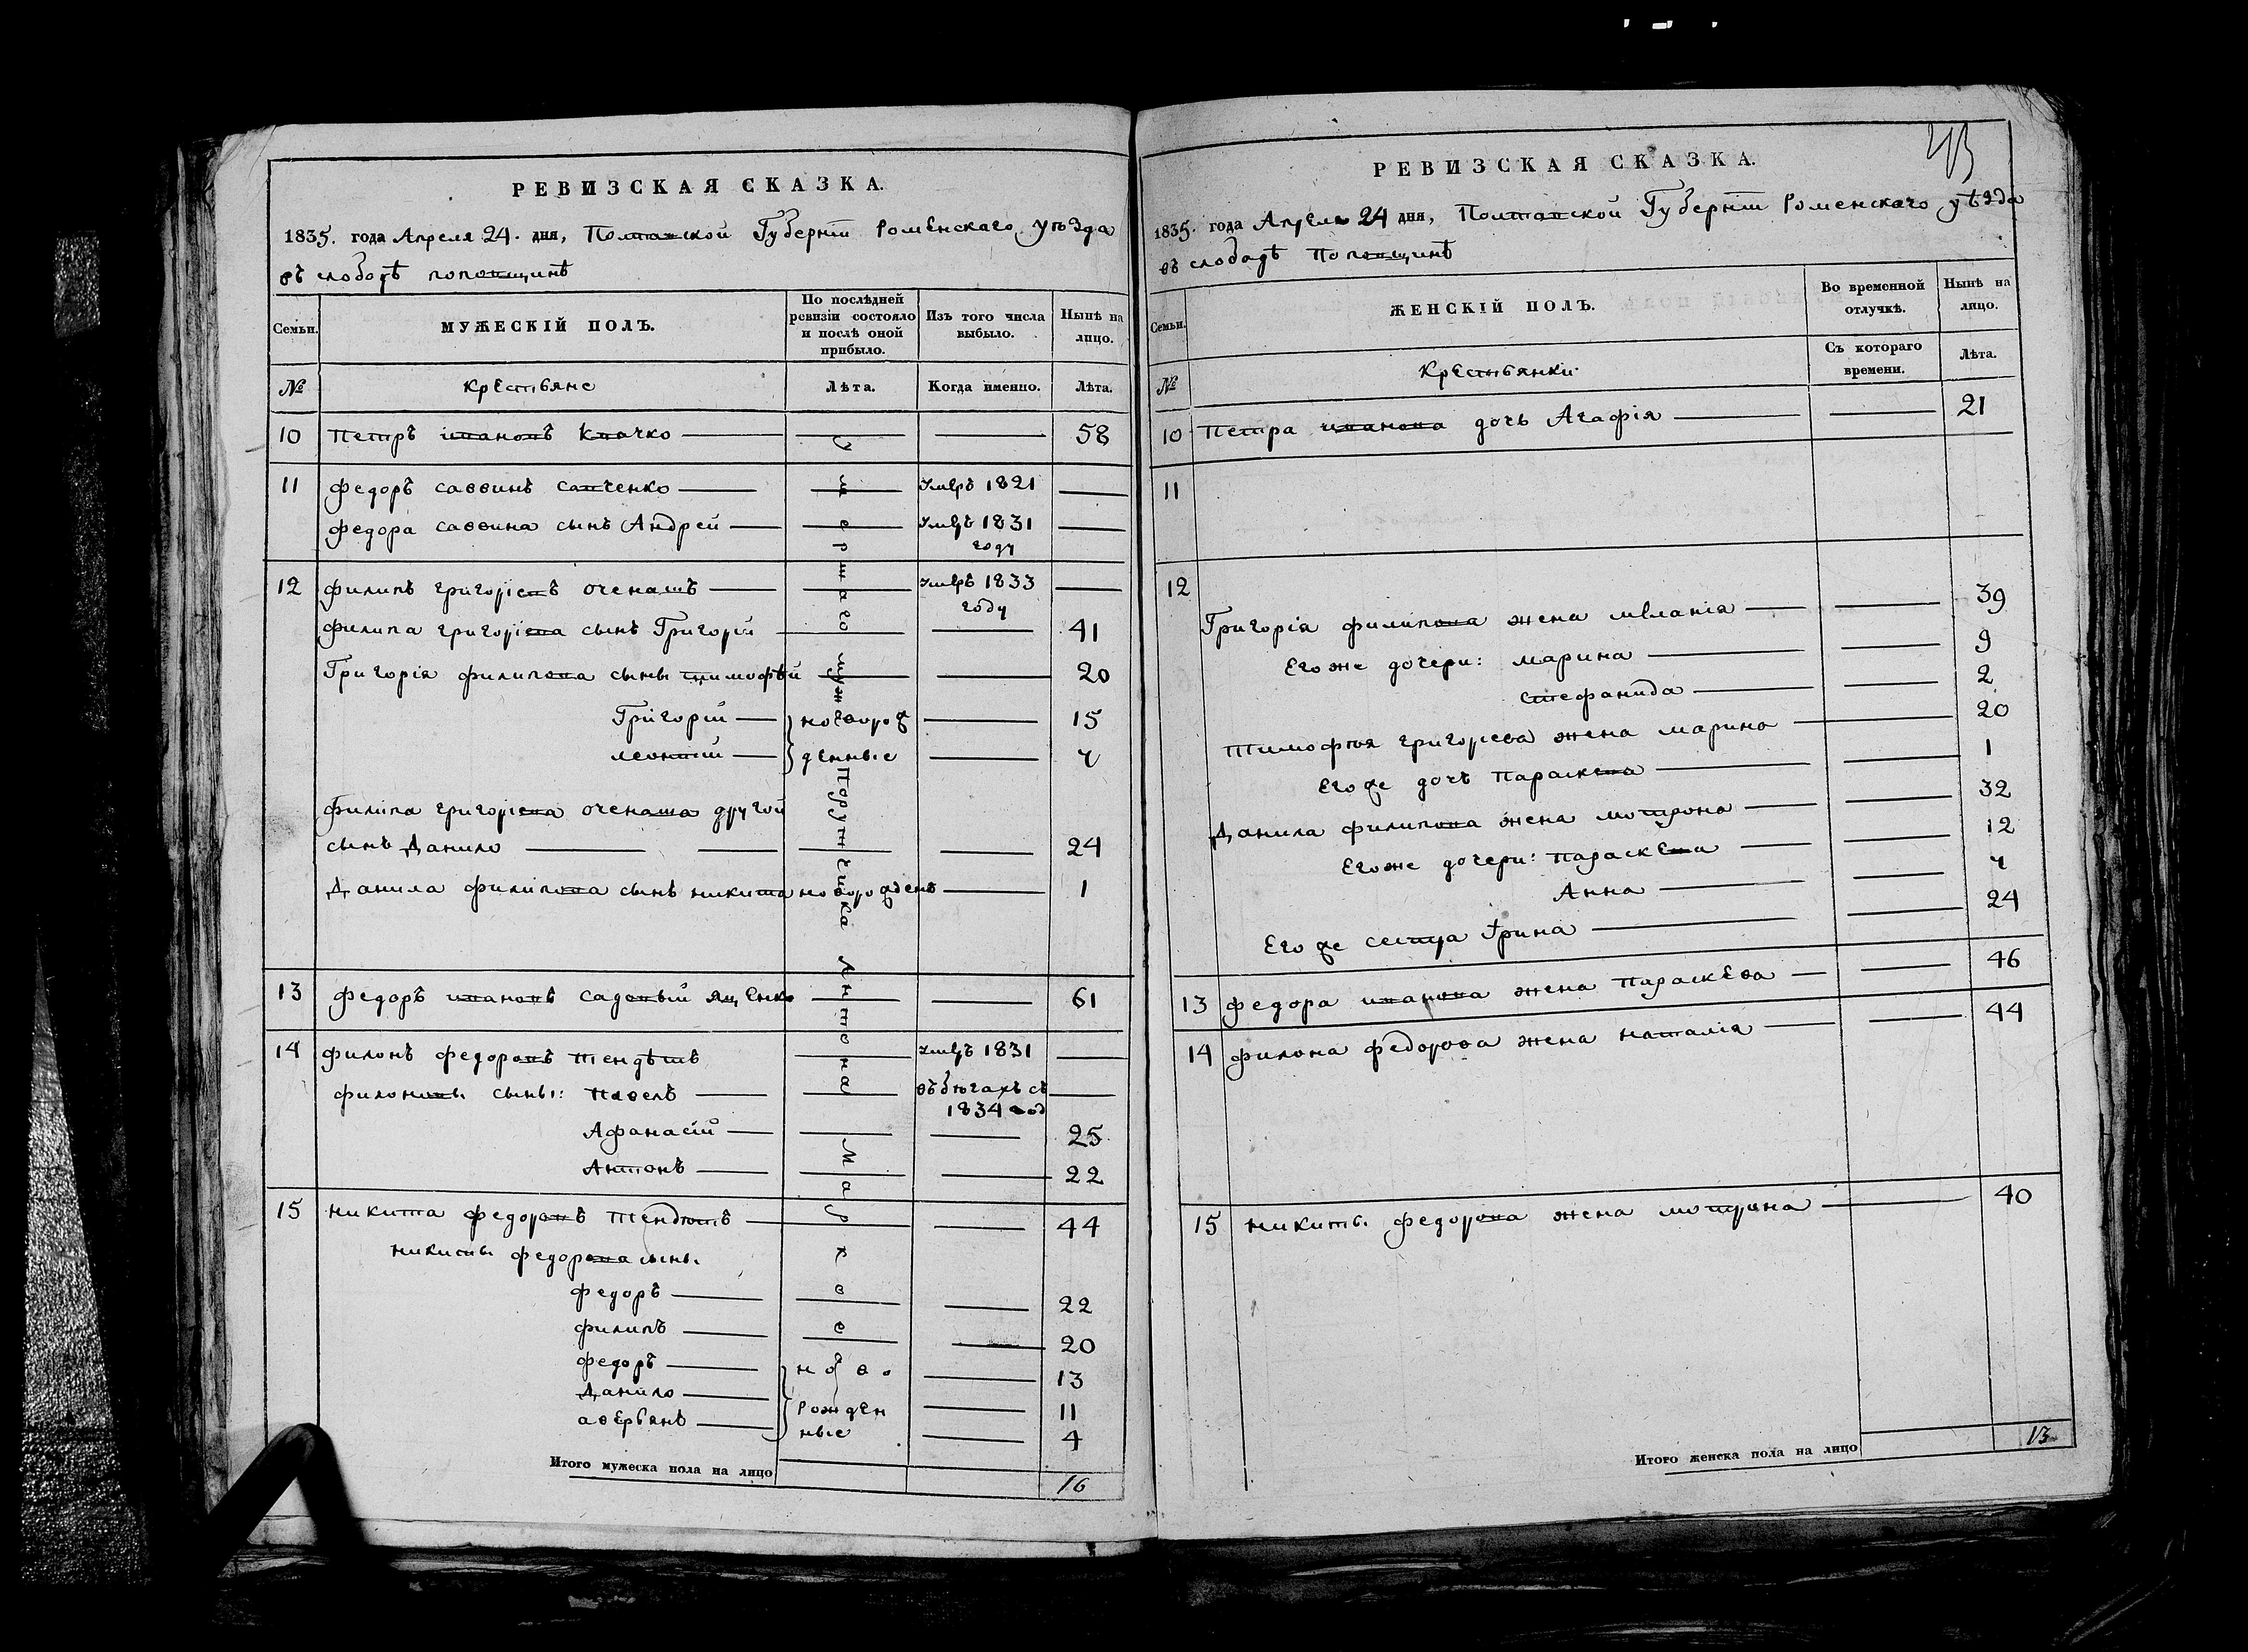 РЕВИЗСКАЯ СКАЗКА.
1835. года Апреля 24. дня, Полтавской Губернїи Роменскаго уѣзда
въ слободѣ поповщинѣ
Семьи.
МУЖЕСКІЙ ПОЛЪ.
По послѣдней ревизіи состояло и послѣ оной прибыло.
Изъ того числа выбыло.
Нынѣ на лицо.
№ крестьяне Лѣта. Когда именно. Лѣта.
10 Петръ ивановъ Квачко 58
11 федоръ саввинъ савченко умеръ 1821
федора саввина сынъ Андрей умеръ 1831
году
12 филипъ григорїевъ оченашъ умеръ 1833
году
филипа григорїева сынъ Григорїй 41
Григорія филипова сыны тимофѣй 20
Григорїй новорож 15
леонтїй денные 4
Филипа григорїева оченаша другой
сынъ Данило 24
Данила филипова сынъ никита новорожденъ 1
13 федоръ ивановъ садовый ященко 61
14 филонъ федоровъ тендѣтъ умеръ 1831
филоновы сыны: павелъ въ бѣгахъ съ
1834 год
Афанасїй 25
Антонъ 22
15 никита федоровъ тендютъ 44
никиты федорова сыны
федоръ 22
филипъ 20
федоръ ново 13
Данило рожден 11
аверьянъ ные 4
Умершаго мужа Поручика Антона Маркова
Итого мужеска пола на лицо 16
43
РЕВИЗСКАЯ СКАЗКА.
1835. года Апреля 24 дня, Полтавской Губернїи Роменскаго уѣзда
въ слободѣ Поповщинѣ
Семьи.
ЖЕНСКІЙ ПОЛЪ.
Во временной отлучкѣ.
Нынѣ на лицо.
№ крестьянки Съ котораго времени. Лѣта.
10 Петра иванова дочь Агафія 21
11
12
Григорія филипова жена меланія 39
Его же дочери: марина 9
стефанида 2
тимофѣя григорїева жена марина 20
Его же дочь параскева 1
Данила филипова жена мотрона 32
Его же дочери: параскева 12
Анна 4
Его же сестра Ирина 24
13 федора иванова жена параскева 46
14 филона федорова жена наталія 44
15 никиты федорова жена мотрона 40
Итого женска пола на лицо 13